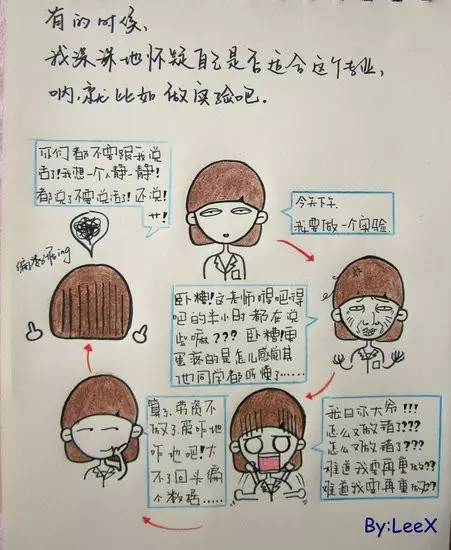 有的时候,
我深深地怀疑自己是否适合这个专业,
呐,就比如做实验吧.
今天下午
我要做一个实验.
卧槽!这老师嘚吧嘚
吧的半小时都在说
些嘛??? 卧槽!更
蛋疼的是怎儿感觉其
他同学都听懂了……
我日尔大爷!!!
怎么又做错了???
怎么又做错了???
难道我要再重做??
难道我要再重做??
算了.劳资不
做了.爱咋地
咋地吧!大
不了回头编
个数据……
你们都不要跟我说
话了!我想一个人静一静!
都说了不要说话了!还说!
艹!
编数据ing
By:LeeX